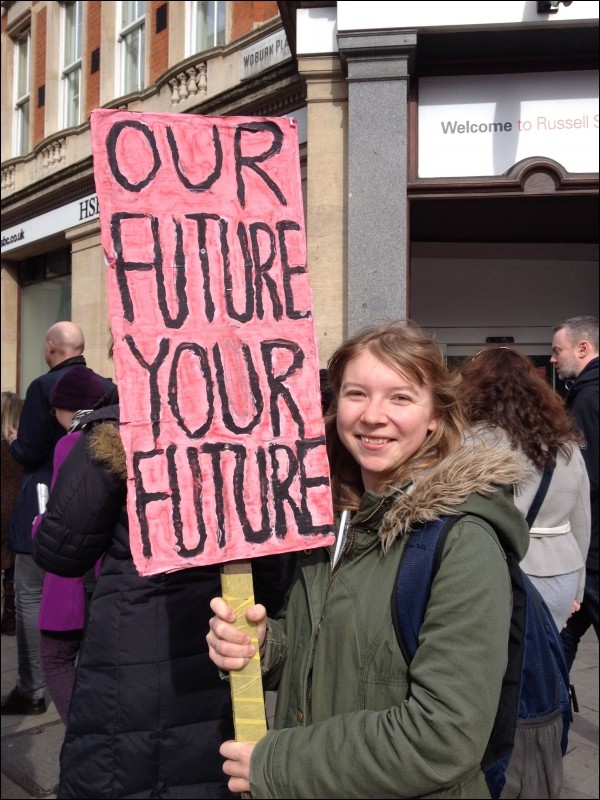 WOBURN PL
Welcome to Russell S
HSB
sbc.co.uk
OUR
FUTURE
YOUR
FUTURE